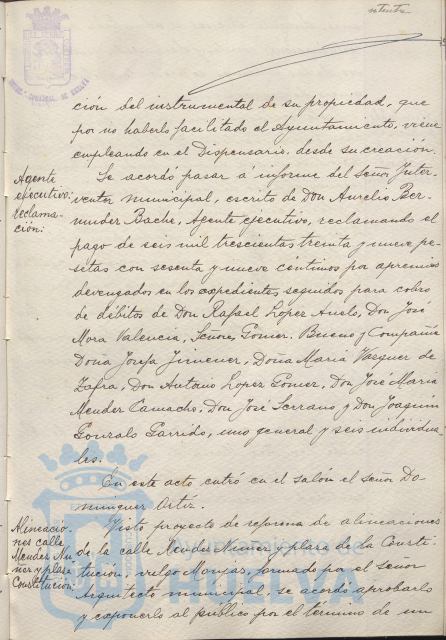 ción del instrumental de su propiedad, que
por no haberlo facilitado el Ayuntamiento, viene
empleando en el Dispensario, desde su creación.
Agente
ejecutivo:
reclama-
ción:
Se acordó pasar á informe del Señor Inter-
ventor municipal, escrito de Don Aurelio Ber-
mudez Bache, Agente ejecutivo, reclamando el
pago de seis mil trescientas treinta y nueve pe-
setas con sesenta y nueve céntimos por apremios
devengados en los expedientes seguidos para cobro
de débitos de Don Rafael Lopez Don José
Mora Valencia, Señores Gomez, Bueno y Compañia
Doña Josefa Jimenez, Doña Maria Vazquez de
Zafra, Don Antonio Lopez Gomez, Don José Maria
Mendez Camacho, Don José Serrano y Don Joaquin
Gonzalo Garrido, uno general y seis individua-
les.
En este acto entró en el salón el señor Do-
minguez Ortiz.
Alineacio-
nes calle
Mendez Nu-
ñez y plaza
Constitución:
Visto proyecto de reforma de alineaciones
de la calle Mendez Nuñez y plaza de la Consti-
tución, vulgo Monjas, formado por el señor
Arquitecto municipal, se acordó aprobarlo
y exponerlo al público por el término de un
Ayuntamiento de
HUELVA